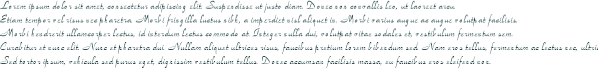 Lorem ipsum dolor sit amet, consectetur adipiscing elit. Suspendisse ut justo diam. Donec nec convallis leo, ut laoreet arcu.
Etiam tempor nisl risus nec pharetra. Morbi fringilla luctus nibh, a imperdiet nisl aliquet in. Morbi varius augue ac augue volutpat facilisis.
Morbi hendrerit ullamcorper lectus, id interdum lectus commodo at. Integer nulla dui, volutpat vitae sodales et, vestibulum fermentum sem.
Curabitur at nunc elit. Nunc at pharetra dui. Nullam aliquet ultrices risus, faucibus pretium lorem bibendum sed. Nam eros tellus, fermentum ac lectus nec, ultricies
Sed tortor ipsum, vehicula sed purus eget, dignissim vestibulum tellus. Donec accumsan facilisis massa, eu faucibus eros eleifend non.